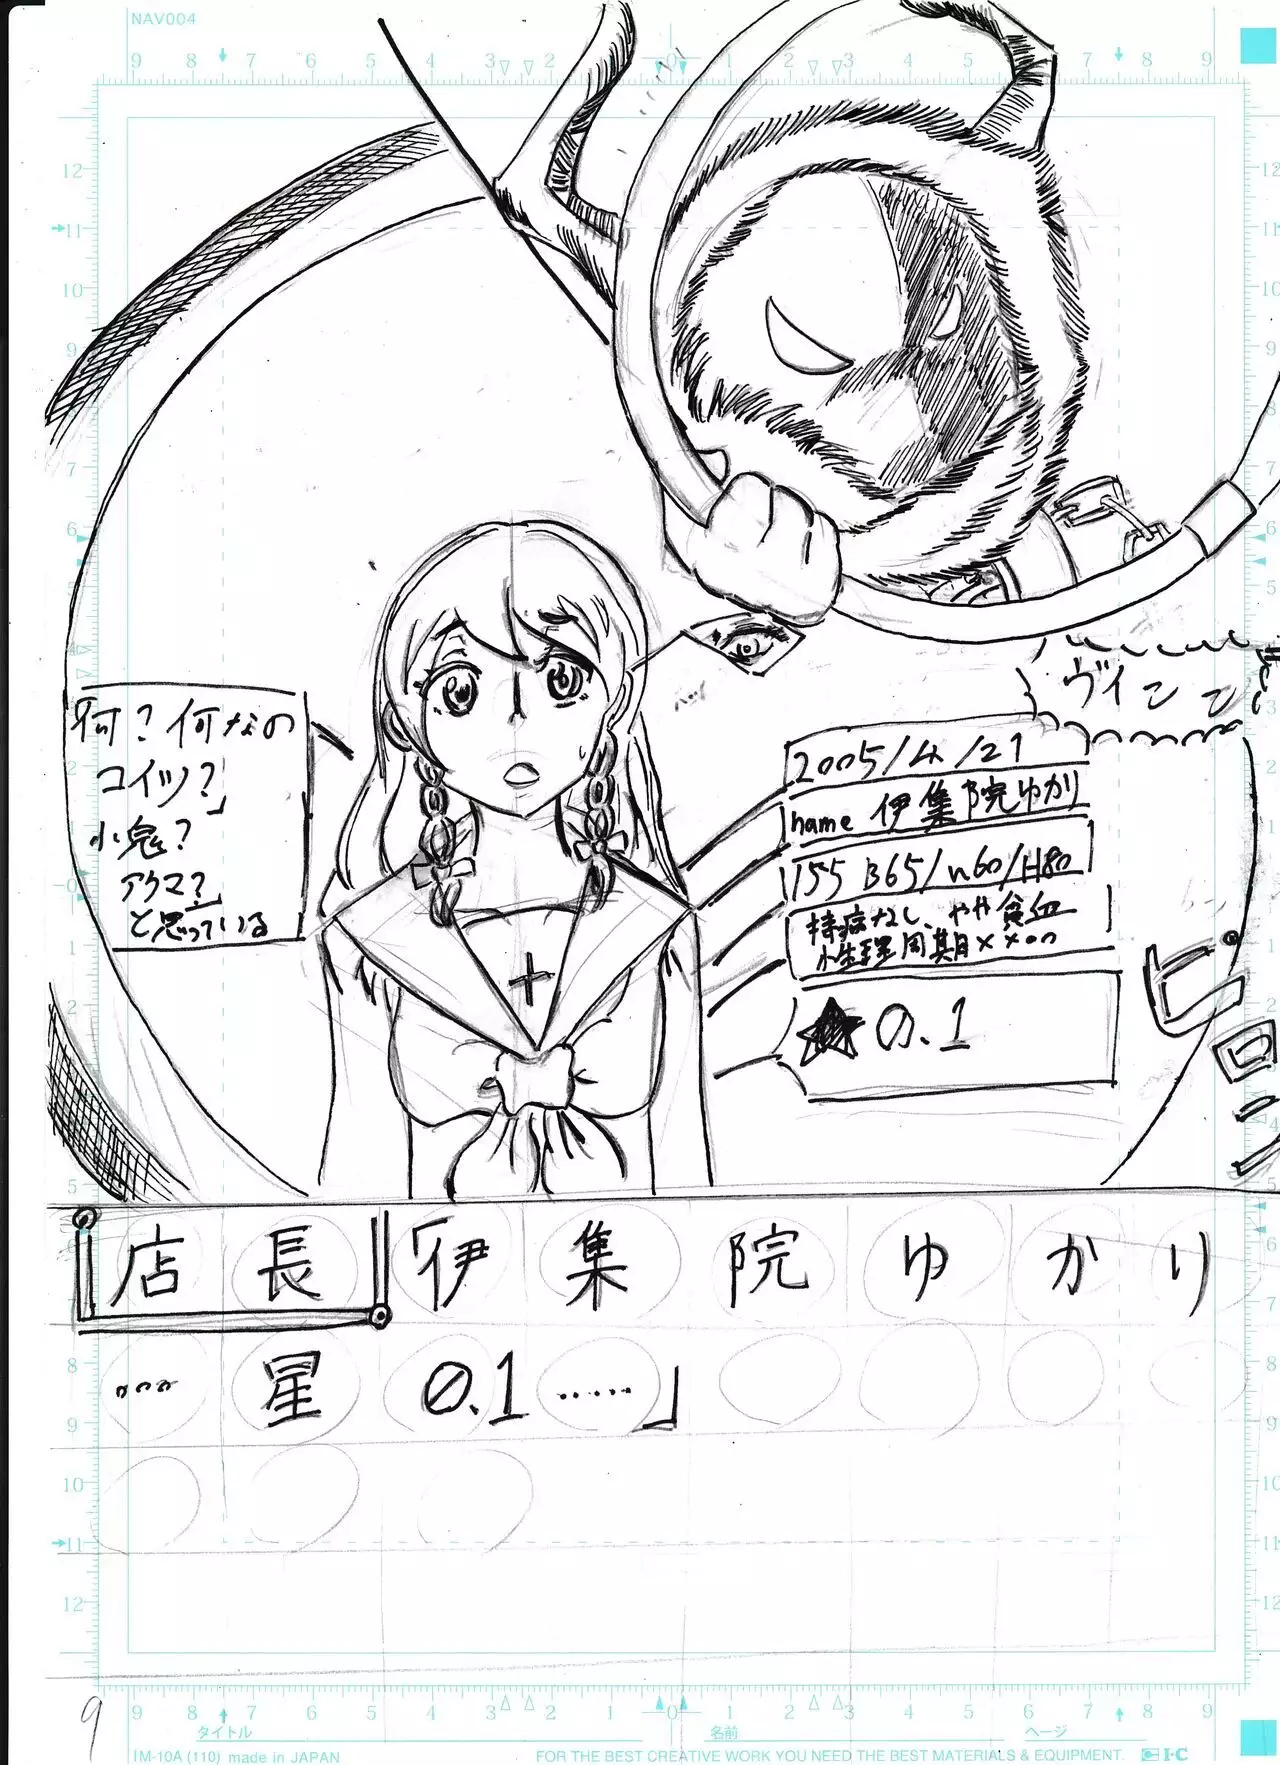 NAV004
9 8 7 6 5 4 3 2 1 0 1 2 3 4 5 6 7 8 9
ヴイーン
何?何なの
コイツ?」
小鬼?
アクマ?」
と思っている
2005/4/21
name 伊集院ゆかり
155 B65/W60/H80
持病なし、やや貧血
生理周期××
★0.1
ピロン
店長「伊集院ゆかり
…星0.1……」
9
タイトル
名前
ページ
IM-10A (110) made in JAPAN
FOR THE BEST CREATIVE WORK YOU NEED THE BEST MATERIALS & EQUIPMENT.
I·C